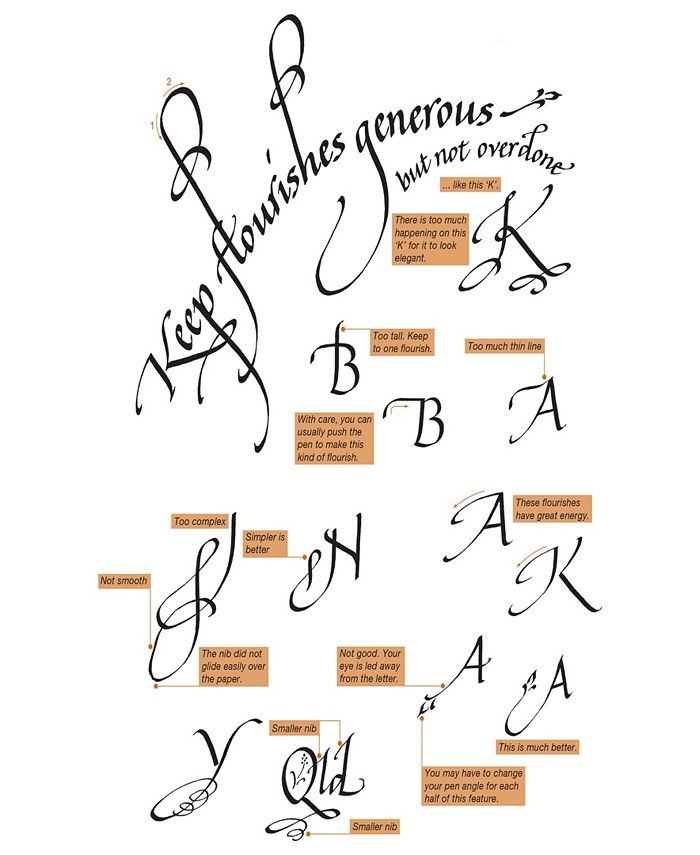 2
1
Keep flourishes generous
but not overdone
... like this ‘K’.
There is too much
happening on this
‘K’ for it to look
elegant.
K
B
Too tall. Keep
to one flourish.
Too much thin line
With care, you can
usually push the
pen to make this
kind of flourish.
B
A
Too complex
Simpler is
better
N
A
These flourishes
have great energy.
K
Not smooth
The nib did not
glide easily over
the paper.
Not good. Your
eye is led away
from the letter.
A
A
This is much better.
Y
Smaller nib
Qld
You may have to change
your pen angle for each
half of this feature.
Smaller nib